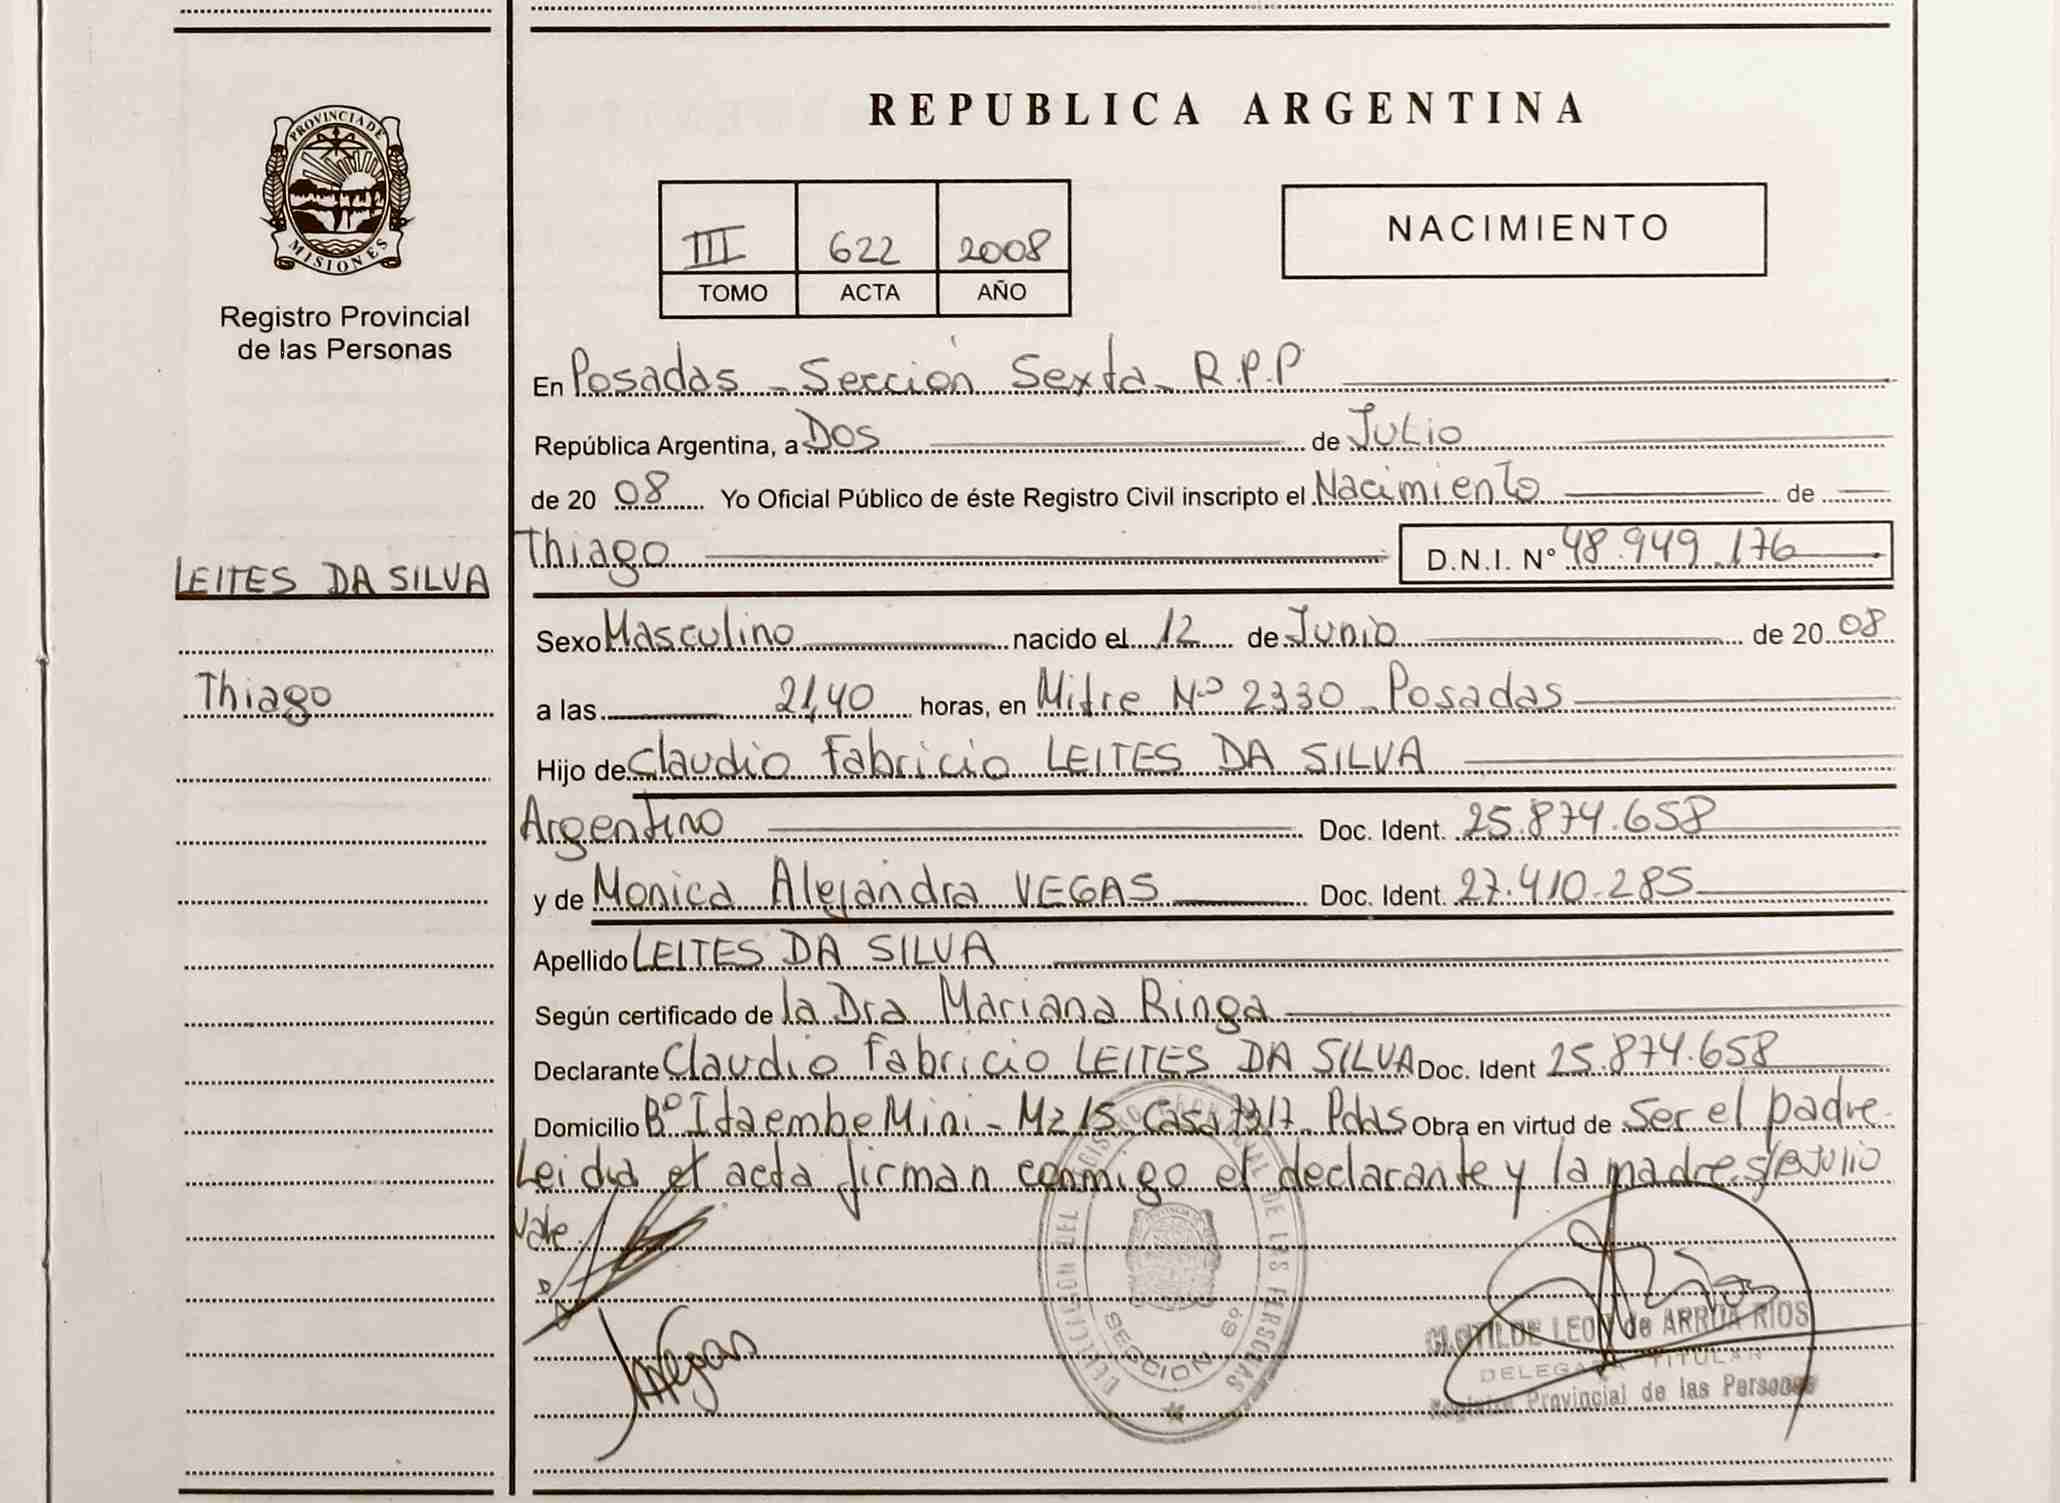 PROVINCIA DE
MISIONES
Registro Provincial
de las Personas
LEITES DA SILVA
Thiago
REPUBLICA ARGENTINA
III 622 2008
TOMO ACTA AÑO
NACIMIENTO
En Posadas - Sección Sexta - R.P.P
República Argentina, a Dos de Julio
de 20 08 Yo Oficial Público de éste Registro Civil inscripto el Nacimiento de
Thiago D.N.I. Nº 48.949.176
Sexo Masculino nacido el 12 de Junio de 20 08
a las 21,40 horas, en Mitre Nº 2330 - Posadas
Hijo de Claudio Fabricio LEITES DA SILVA
Argentino Doc. Ident. 25.874.658
y de Monica Alejandra VEGAS Doc. Ident. 27.410.285
Apellido LEITES DA SILVA
Según certificado de la Dra Mariana Ringa
Declarante Claudio Fabricio LEITES DA SILVA Doc. Ident 25.874.658
Domicilio Bº Itaembe Mini - Mz 15 Casa Pdas Obra en virtud de Ser el padre
Leida el acta firman conmigo el declarante y la madre s/B Julio
Vale
MVegas
DIRECCION DEL REGISTRO PROVINCIAL DE LAS PERSONAS
SECCION 6º
CLOTILDE LEON de ARRUA RIOS
DELEGADA TITULAR
Registro Provincial de las Personas